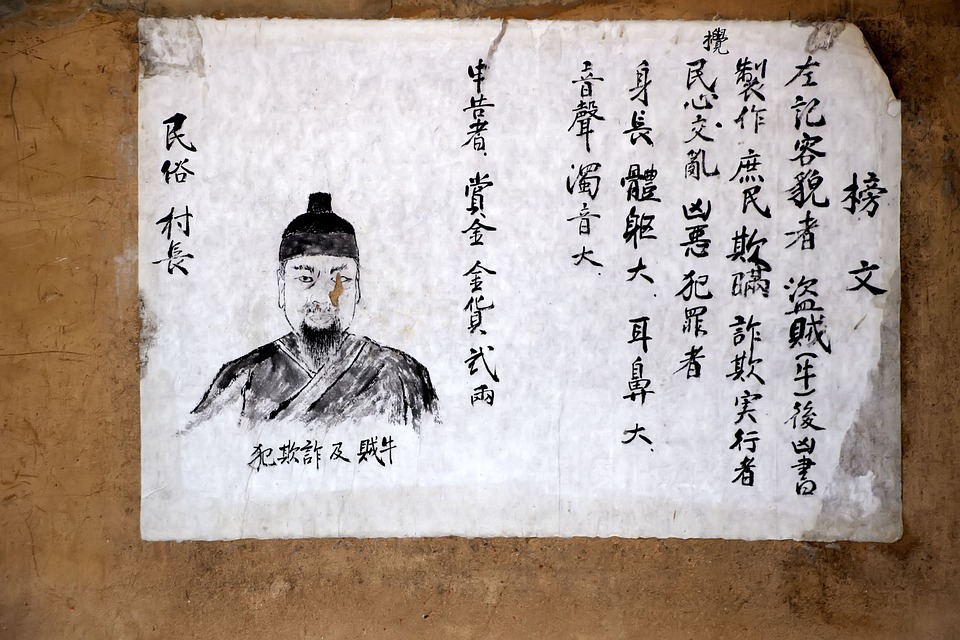 榜文
左記容貌者 盜賊(牛)後凶書
製作 庶民 欺瞞 詐欺実行者
攪民心交亂 凶惡犯罪者
身長 體軀大. 耳鼻大.
音聲 濁音大.
申告者. 賞金 金貨 弍兩
犯欺詐及賊牛
民俗村長